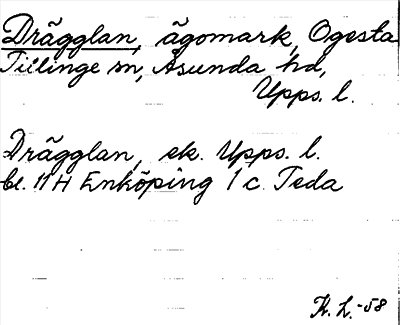 Drägglan, ägomark, Ogesta
Tillinge sn, Åsunda hd,
Upps. l.
Drägglan, ek. Upps. l.
bl. 11 H Enköping 1 c Teda
Th. L. -58